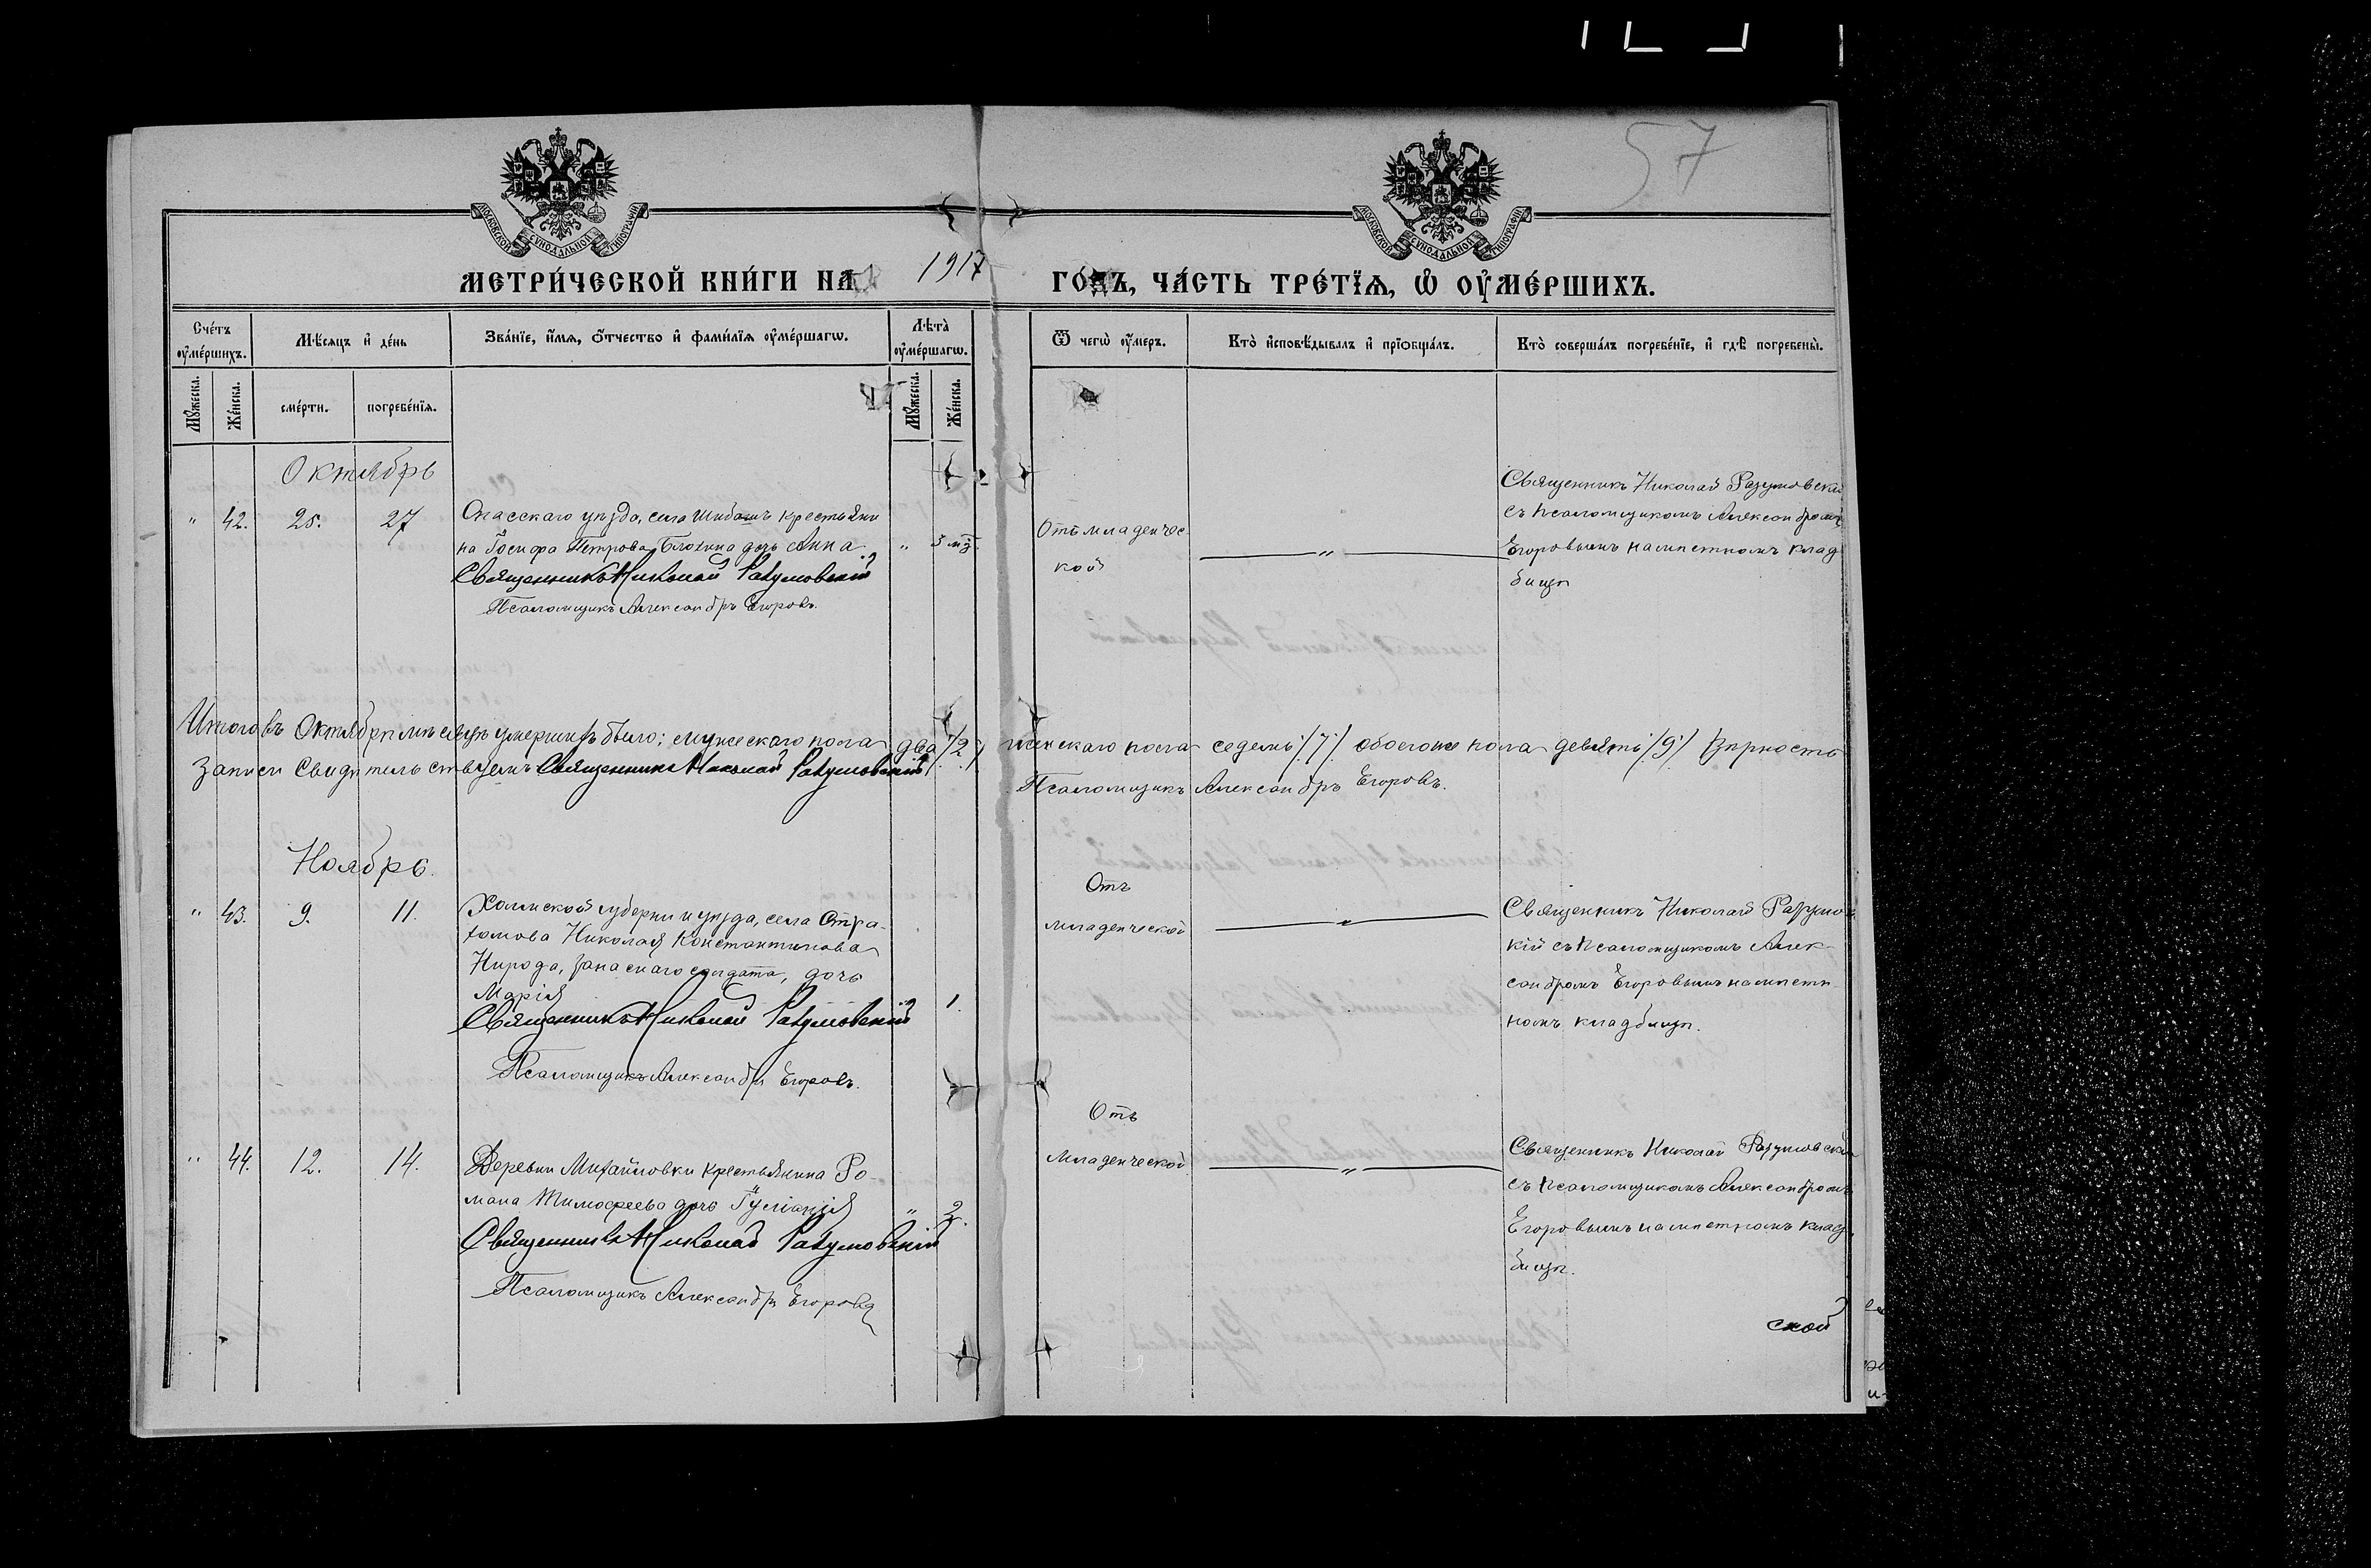 57
МОСКОВСКОЙ СѴНОДАЛЬНОЙ ТИПОГРАФІИ
МОСКОВСКОЙ СѴНОДАЛЬНОЙ ТИПОГРАФІИ
МЕТРИ́ЧЕСКОЙ КНИ́ГИ НА 1917 ГО́ДЪ, ЧА́СТЬ ТРЕ́ТЇѦ, Ѡ ОУ҆МЕ́РШИХЪ.
Сче́тъ оу҆ме́ршихъ.
Мѣ́сяцъ и҆ де́нь
Зва́нїе, и҆́мѧ, ѻ҆́тчество и҆ фами́лїѧ оу҆ме́ршагѡ.
Лѣ́та оу҆ме́ршагѡ.
Ѿ чегѡ̀ оу҆́меръ.
Кто̀ и҆сповѣ́дывалъ и҆ прїѻбща́лъ.
Кто̀ соверша́лъ погребе́нїе, и҆ гдѣ̀ погребены̀.
Мꙋ́жеска.
Же́нска.
сме́рти.
погребе́нїѧ.
Мꙋ́жеска.
Же́нска.
Октябрь
" 42. 25. 27
Спасскаго уѣзда, села Шибашъ крестьяни
на Іосифа Петрова Блохина дочь Анна
Священникъ Николай Разумовскій
Псаломщикъ Александръ Егоровъ.
" 5 мц.
Отъ младенчес
кой
"
Священникъ Николай Разумовскій
съ псаломщикомъ Александромъ
Егоровымъ на мѣстномъ клад
бищѣ
Итого въ Октябрѣ мѣсяцѣ умершихъ было: мужескаго пола два /2/ женскаго пола седемь /7/ обоегоже пола девять /9/ Вѣрность
записи Свидѣтельствуемъ Священникъ Николай Разумовскій
Псаломщикъ Александръ Егоровъ.
Ноябрь.
" 43. 9. 11.
Холмской губерни и уѣзда, села
Николая Константинова
запаснаго солдата, дочь
Марія
Священникъ Николай Разумовскій
Псаломщикъ Александръ Егоровъ.
" 1.
Отъ
младенческой
"
Священникъ Николай Разумов
кій съ псаломщикомъ Алек-
сандромъ Егоровымъ на мѣст
номъ кладбищѣ.
" 44. 12. 14.
Деревни Михайловки крестьянина Ро-
мана Тимофеева дочь Іуліанія
Священникъ Николай Разумовскій
Псаломщикъ Александръ Егоровъ
" 2.
Отъ
младенческой
"
Священникъ Николай Разумовскій
съ псаломщикомъ Александромъ
Егоровымъ на мѣстномъ клад
бищѣ.
ской